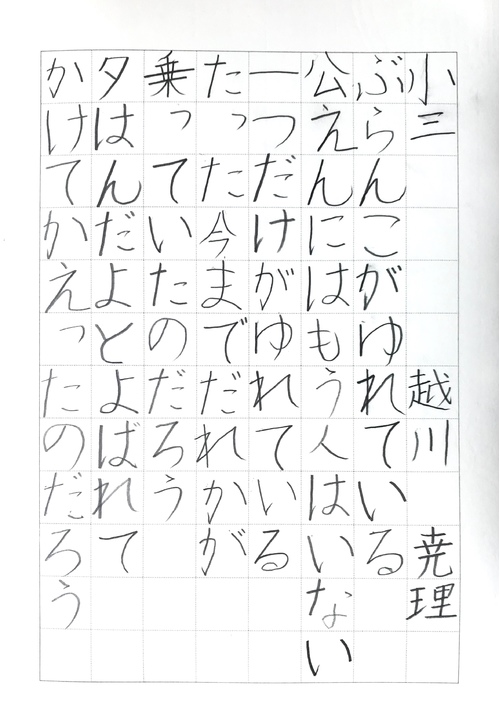 小三 越川 尭理
ぶらんこがゆれている
公えんにはもう人はいない
一つだけがゆれている
たったた今までだれかが
乗っていたのだろう
夕はんだよとよばれて
かけてかえったのだろう